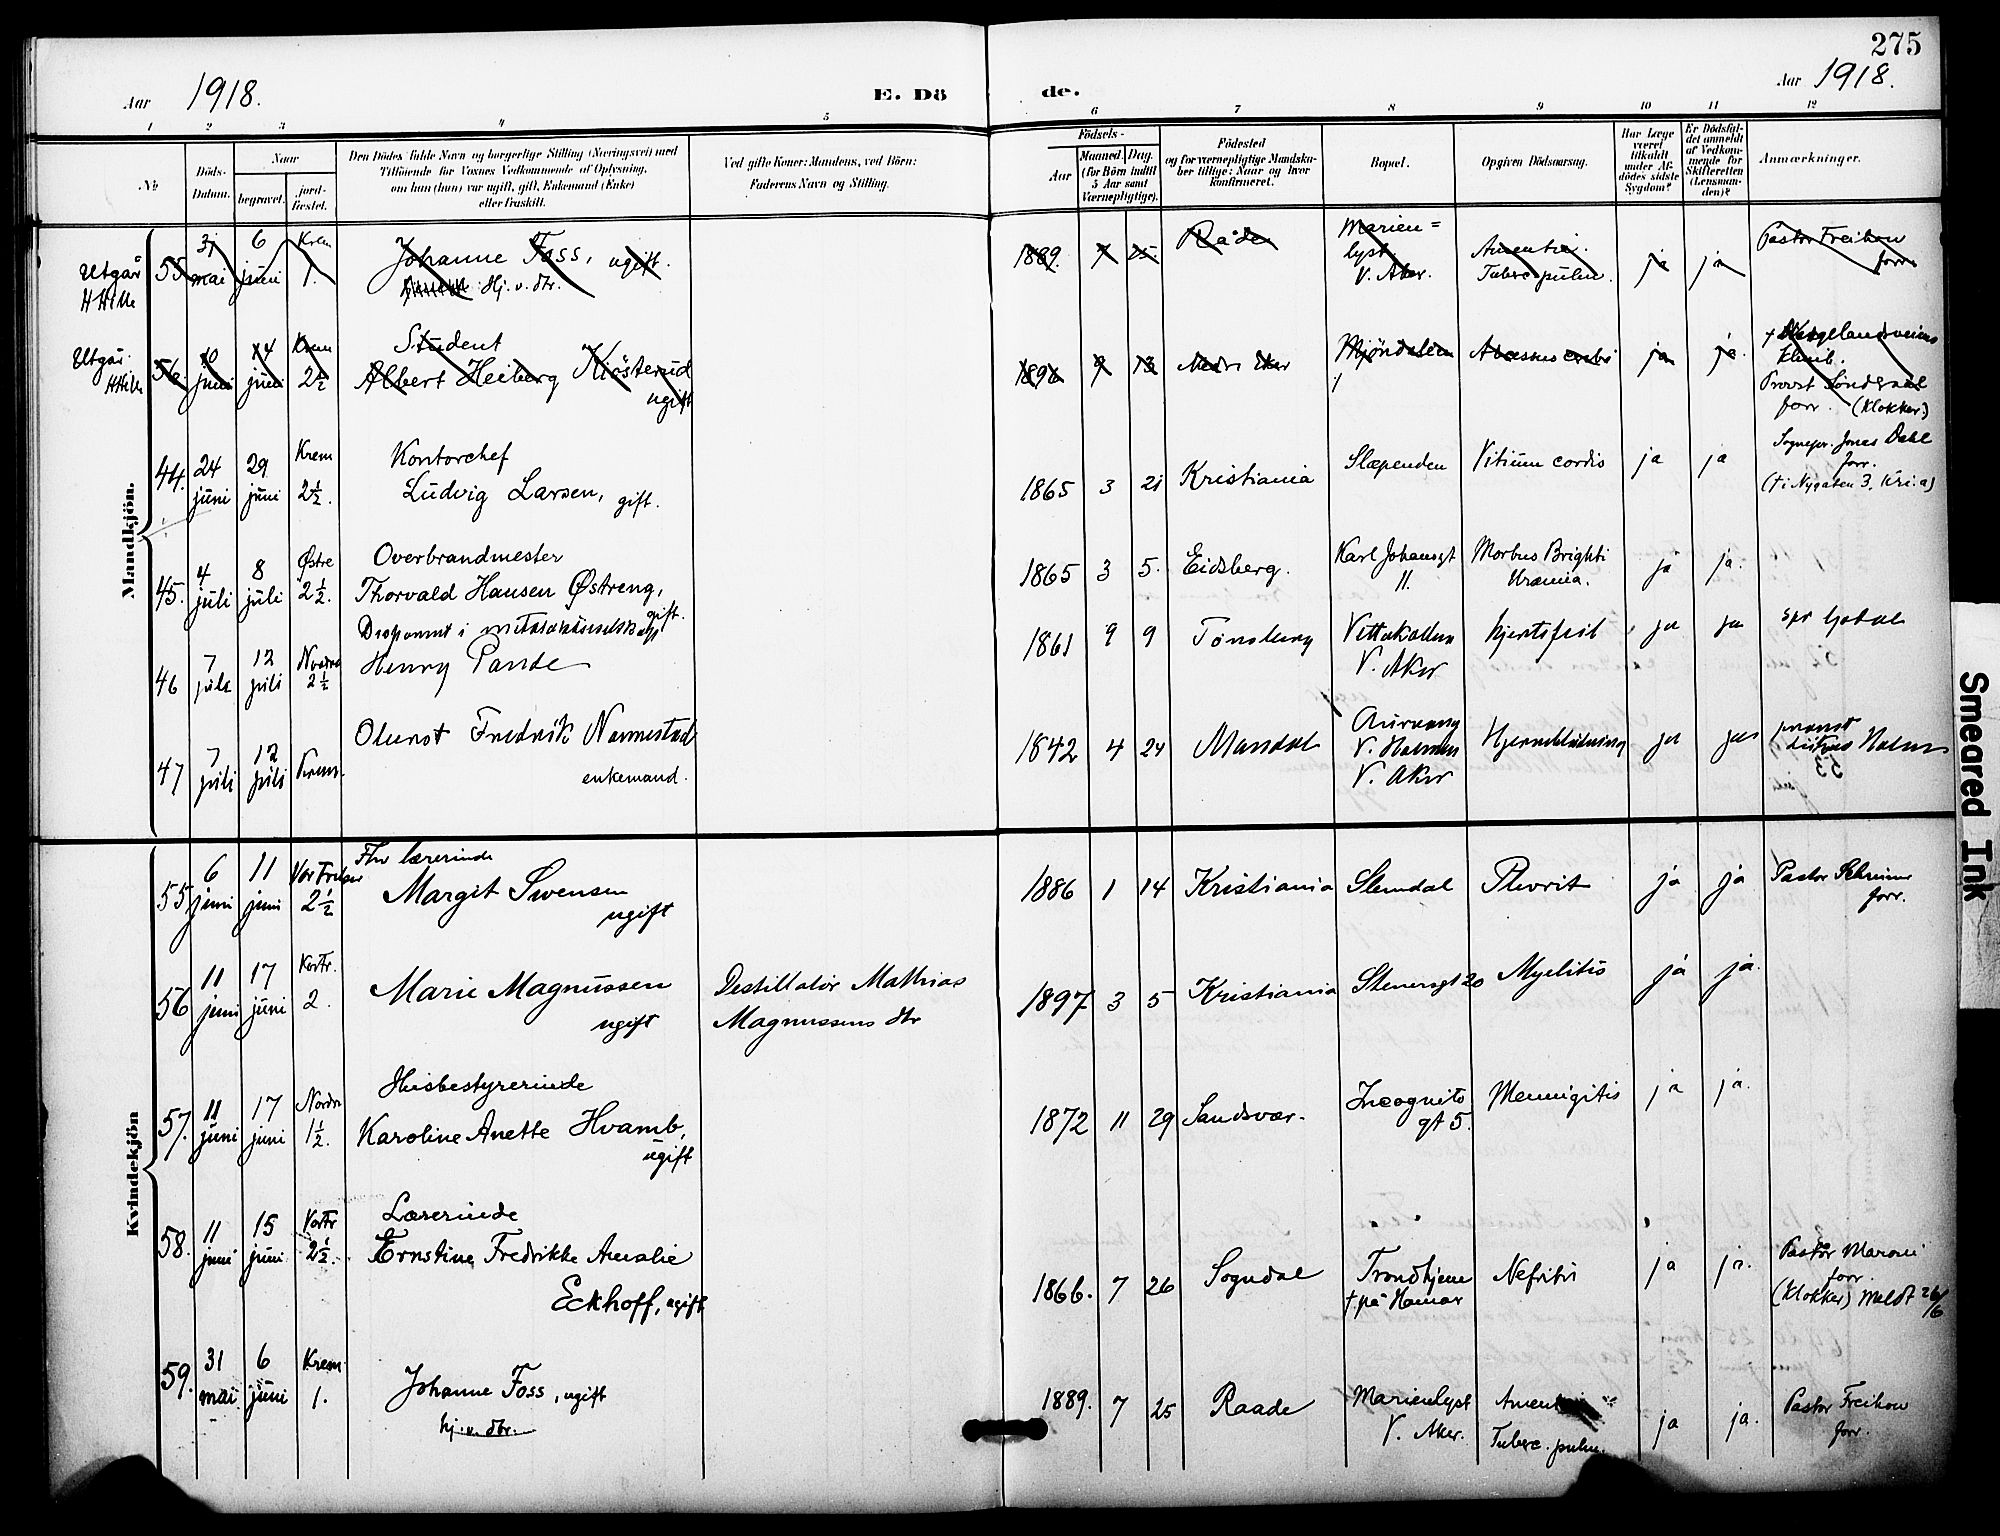 275
Aar 1918.
E. Dö
de.
Aar 1918.
1 2 3 4 5 6 7 8 9 10 11 12
No
Döds-
Datum.
Naar
begravet.
jord-
fæstet.
Den Dödes fulde Navn og borgerlige Stilling (Næringsvei) med
Tilföiende for Voxnes Vedkommende af Oplysning,
om han (hun) var ugift, gift, Enkemand (Enke)
eller fraskilt.
Ved gifte Koner: Mandens, ved Börn:
Faderens Navn og Stilling.
Födsels-
Aar
Maaned. Dag.
(for Börn indtil
5 Aar samt
Værnepligtige).
Födested
og for værnepligtige Mandska-
ber tillige: Naar og hvor
konfirmeret.
Bopæl.
Opgiven Dödsaarsag.
Har Læge
været
tilkaldt
under Af-
dödes sidste
Sygdom?
Er Dödsfal-
det anmeldt
af Vedkom-
mende for
Skifteretten
(Lensman-
den)?
Anmærkninger.
Mandkjön.
Utgår
H Hille
55 31 mai 6 juni Krem 1.
Johanne Foss, ugift.
Hj. v. dtr.
1889. 7 25. Råde
Marien=
lyst
V. Aker.
Amentia.
Tuberc. pulm.
ja ja
Pastor Freihow
forr.
Utgår.
HHille
56. 10 juni 14 juni Krem 2½
Student
Albert Heiberg Kiösterud
ugift
1896 9 13 Nedre Eker
Mjöndalen
Abscessus cerebri
ja ja.
† Wergelandsveiens
klinik.
Provst Sönderaal
forr. (Klokker.)
44. 24 juni 29 juni Krem 2½.
Kontorchef
Ludvig Larsen, gift.
1865 3 21 Kristiania Slæpenden Vitium cordis ja ja
Sognepr. Jonas Dahl
forr.
(† i Nygaten 3, Kri.a)
45. 4 juli 8 juli Østre 2½.
Overbrandmester
Thorvald Hansen Østreng,
gift.
1865 3 5. Eidsberg.
Karl Johansgt
11.
Morbus Brighti
Uræmia.
ja ja.
46 7 juli 12 juli Nordre 2½
Disponent i
Henry Pande
1861 9 9 Tönsberg
Vettakollen
V. Aker
hjertefeil ja ja
spr
47 7 juli 12 juli Krem.
Oluf Fredrik Nannestad
enkemand.
1842 4 24 Mandal
V. Holmen
V. Aker
Hjerneblödning ja ja
Kvindekjön
55 6 juni 11 juni Vor Frelser 2½
Fhv lærerinde
Margit Swensen
ugift
1886 1 14 Kristiania Slemdal Plevrit ja ja
Pastor Schreiner
forr.
56 11 juni 17 juni Vorfr. 2.
Marie Magnussen
ugift
Destillatør Mathias
Magnussens dtr
1897 3 5 Kristiania Stenersgt 20 Myelitis ja ja.
57. 11 juni 17 juni Nordre 1½.
Husbestyrerinde
Karoline Anette Hvamb,
ugift
1872 11 29 Sandsvær.
Incognito
gt 5.
Mennigitis ja ja.
58. 11 juni 15 juni Vorfr 2½.
Lærerinde
Ernstine Fredrikke Amalie
Eckhoff, ugift
1866. 7 26 Sogndal
Trondhjem
† på Hamar
Nefritis ja ja.
Pastor Maroni
forr.
(Klokker) Meldt 26/6
59. 31 mai 6 juni Krem. 1.
Johanne Foss, ugift
hj. v. dtr.
1889. 7 25 Raade
Marienlyst
V. Aker.
Tuberc. pulm.
ja ja.
Pastor Freihow
forr.
Smeared Ink